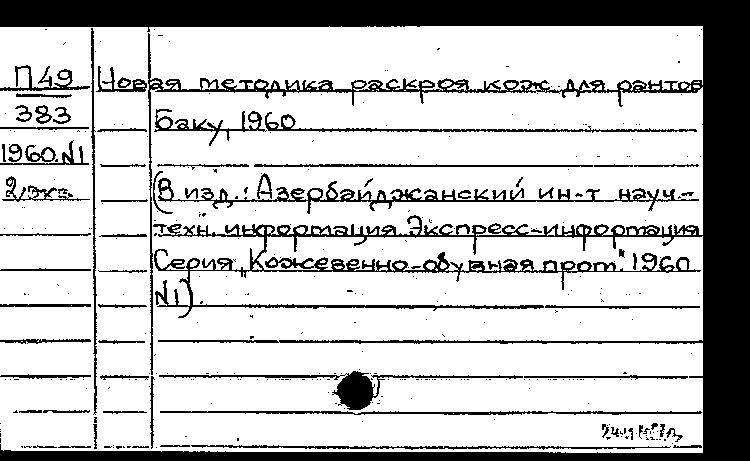 П49 Новая методика раскроя кож для рантов
383 Баку, 1960
1960.№1
2 экз. (В изд.: Азербайджанский ин-т науч.-
техн. информация. Экспресс-информация
Серия „Кожевенно-обувная пром." 1960
№1).